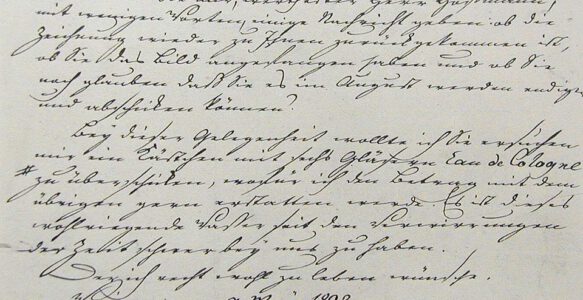 Sie mir, werthester Herr Hoffmann,
mit wenigen Worten, einige Nachricht geben: ob die
Zeichnung wieder zu Ihnen zurückgekommen ist,
ob Sie das Bild angefangen haben und ob Sie
noch glauben daß Sie es im August werden endigen
und abschicken können?
Bey dieser Gelegenheit wollte ich Sie ersuchen
mir ein Kästchen mit sechs Gläsern Eau de Cologne
# zu überschicken, wofür ich den Betrag mit dem
übrigen gern erstatten werde. Es ist dieses
wohlriegende Wasser seit den Verwirrungen
der Zeit schwer bey uns zu haben.
Der ich recht wohl zu leben wünsche.